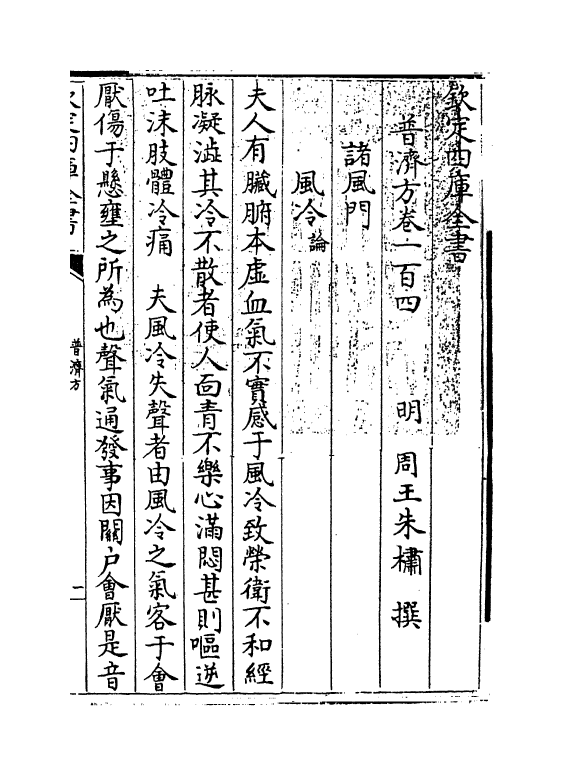 欽定四庫全書
普濟方卷一百四　明　周王朱橚　撰
諸風門
風冷論
夫人有臟腑本虛血氣不實感于風冷致榮衛不和經
脉凝澁其冷不散者使人面青不樂心滿悶甚則嘔逆
吐沫肢體冷痛　夫風冷失聲者由風冷之氣客于會
厭傷于懸壅之所為也聲氣通發事因關户會厭是音
欽定四庫全書
普濟方
二